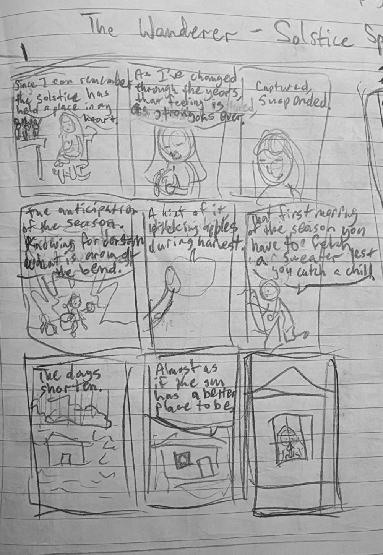 The Wanderer - Solstice Sp
1
Since I can remember
the solstice has
held a place in my
heart.
As I've changed
through the years,
that feeling is
as strong as ever.
Captured,
suspended.
The anticipation
of the season.
Knowing for certain
what is around
the bend.
A hint of it
while picking apples
during harvest.
That first morning
of the season you
have to fetch
a sweater lest
you catch a chill
The days
shorten.
Almost as
if the sun
has a better
place to be.